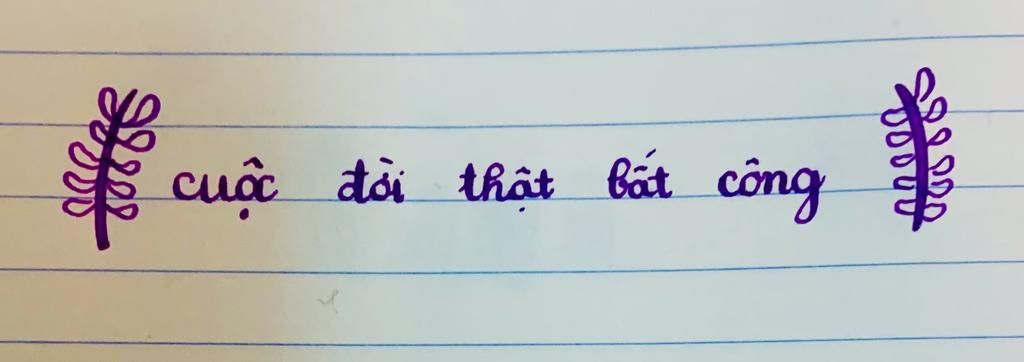 cuộc đời thật bất công